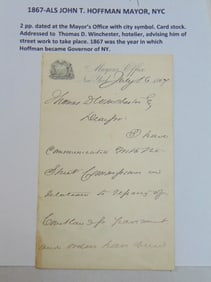 1867-ALS JOHN T. HOFFMAN MAYOR, NYC
2 pp. dated at the Mayor's Office with city symbol. Card stock.
Addressed to Thomas D. Winchester, hotelier, advising him of
street work to take place. 1867 was the year in which
Hoffman became Governor of NY.
Mayor's Office
New York, 1867
Thomas D Winchester
Dear Sir
I have
Communicated with the
Street Commissioner in
relation to repairs of
pavement
and orders have been